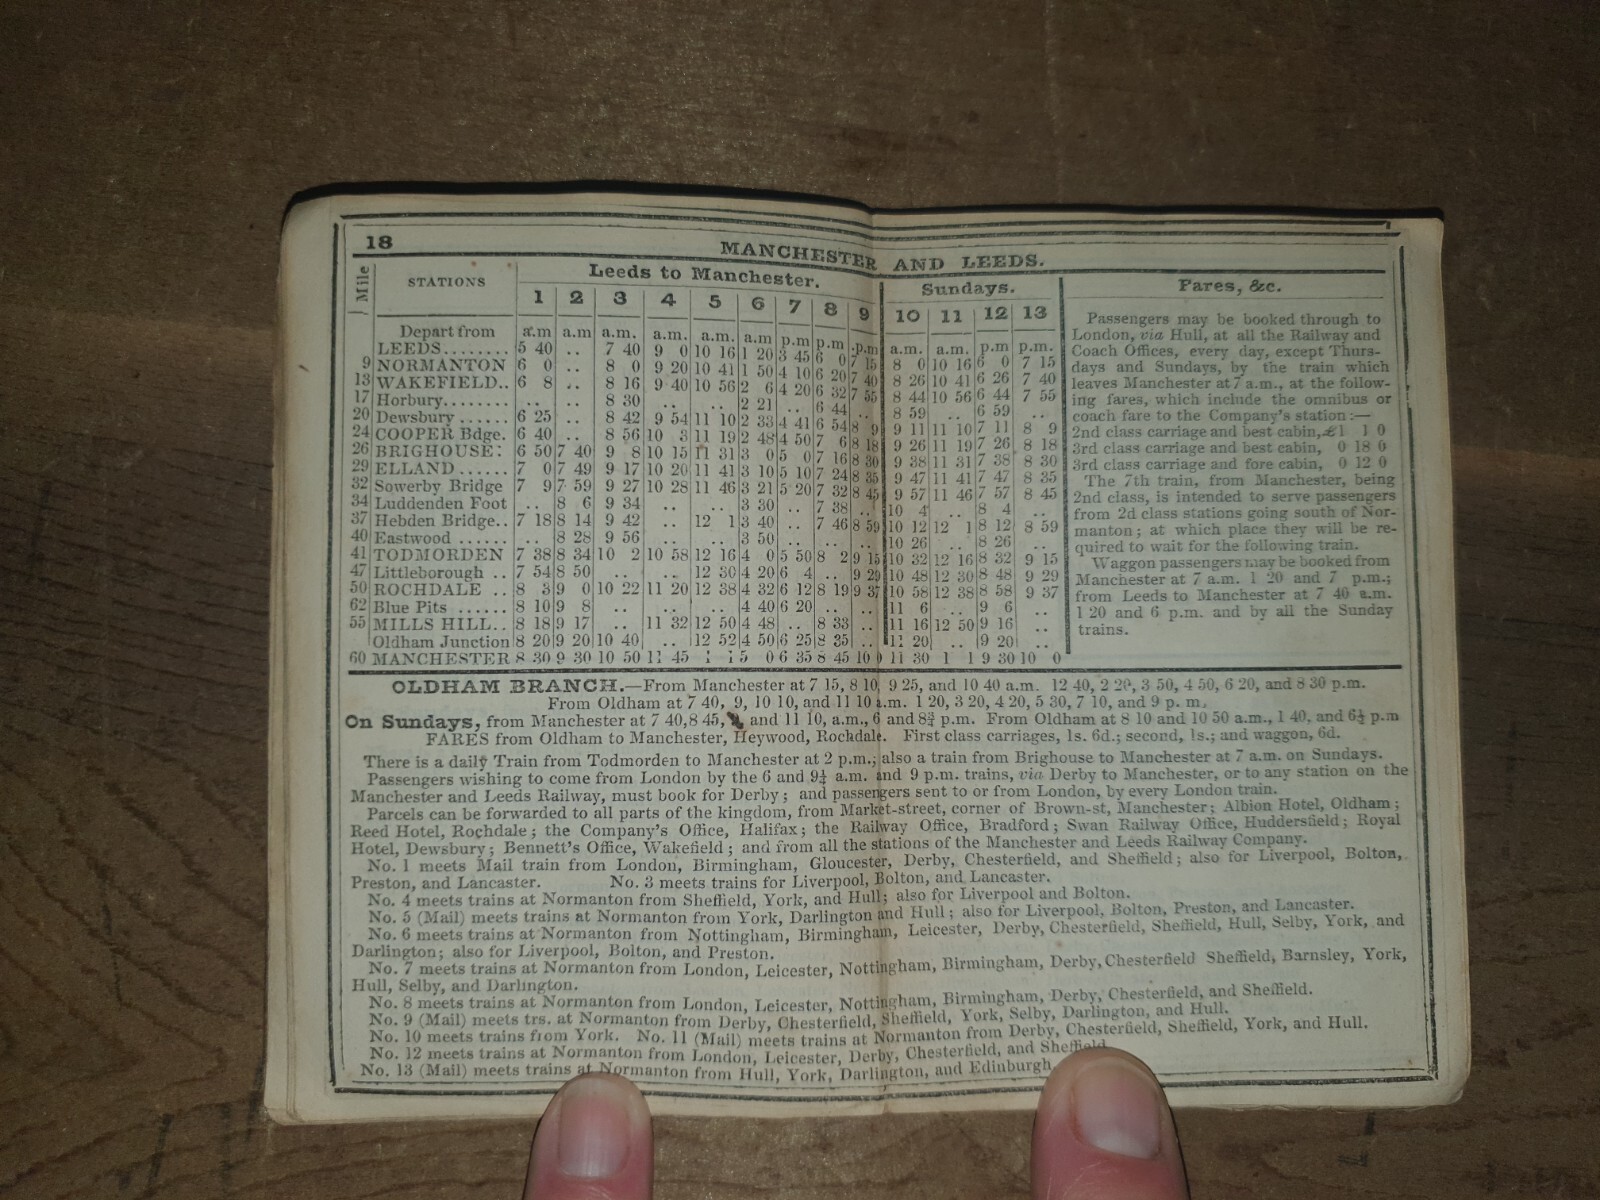 18
MANCHESTER AND LEEDS.
Mile | STATIONS | Leeds to Manchester. | Sundays. | Fares, &c.
1 | 2 | 3 | 4 | 5 | 6 | 7 | 8 | 9 | 10 | 11 | 12 | 13
Depart from | a.m | a.m | a.m. | a.m. | a.m. | a.m | p.m | p.m | p.m | a.m. | a.m. | p.m | p.m.
LEEDS........ | 5 40 | .. | 7 40 | 9 0 | 10 16 | 1 20 | 3 45 | 6 0 | 7 15 | 8 0 | 10 16 | 6 0 | 7 15
9 NORMANTON | 6 0 | .. | 8 0 | 9 20 | 10 41 | 1 50 | 4 10 | 6 20 | 7 40 | 8 26 | 10 41 | 6 26 | 7 40
13 WAKEFIELD.. | 6 8 | .. | 8 16 | 9 40 | 10 56 | 2 6 | 4 20 | 6 32 | 7 55 | 8 44 | 10 56 | 6 44 | 7 55
17 Horbury........ | .. | .. | 8 30 | .. | .. | 2 21 | .. | 6 44 | | 8 59 | .. | 6 59 | ..
20 Dewsbury ...... | 6 25 | .. | 8 42 | 9 54 | 11 10 | 2 33 | 4 41 | 6 54 | 8 9 | 9 11 | 11 10 | 7 11 | 8 9
24 COOPER Bdge. | 6 40 | .. | 8 56 | 10 3 | 11 19 | 2 48 | 4 50 | 7 6 | 8 18 | 9 26 | 11 19 | 7 26 | 8 18
26 BRIGHOUSE: | 6 50 | 7 40 | 9 8 | 10 15 | 11 31 | 3 0 | 5 0 | 7 16 | 8 30 | 9 38 | 11 31 | 7 38 | 8 30
29 ELLAND ...... | 7 0 | 7 49 | 9 17 | 10 20 | 11 41 | 3 10 | 5 10 | 7 24 | 8 35 | 9 47 | 11 41 | 7 47 | 8 35
32 Sowerby Bridge | 7 9 | 7 59 | 9 27 | 10 28 | 11 46 | 3 21 | 5 20 | 7 32 | 8 45 | 9 57 | 11 46 | 7 57 | 8 45
34 Luddenden Foot | .. | 8 6 | 9 34 | .. | .. | 3 30 | .. | 7 38 | .. | 10 4 | .. | 8 4 | ..
37 Hebden Bridge.. | 7 18 | 8 14 | 9 42 | .. | 12 1 | 3 40 | .. | 7 46 | 8 59 | 10 12 | 12 1 | 8 12 | 8 59
40 Eastwood ...... | .. | 8 28 | 9 56 | | | 3 50 | | | | 10 26 | .. | 8 26 | ..
41 TODMORDEN | 7 38 | 8 34 | 10 2 | 10 58 | 12 16 | 4 0 | 5 50 | 8 2 | 9 15 | 10 32 | 12 16 | 8 32 | 9 15
47 Littleborough .. | 7 54 | 8 50 | .. | .. | 12 30 | 4 20 | 6 4 | .. | 9 29 | 10 48 | 12 30 | 8 48 | 9 29
50 ROCHDALE .. | 8 3 | 9 0 | 10 22 | 11 20 | 12 38 | 4 32 | 6 12 | 8 19 | 9 37 | 10 58 | 12 38 | 8 58 | 9 37
62 Blue Pits ...... | 8 10 | 9 8 | .. | .. | | 4 40 | 6 20 | | | 11 6 | .. | 9 6 | ..
55 MILLS HILL.. | 8 18 | 9 17 | .. | 11 32 | 12 50 | 4 48 | .. | 8 33 | .. | 11 16 | 12 50 | 9 16 | ..
Oldham Junction | 8 20 | 9 20 | 10 40 | | 12 52 | 4 50 | 6 25 | 8 35 | .. | 11 20 | | 9 20
60 MANCHESTER | 8 30 | 9 30 | 10 50 | 11 45 | 1 1 | 5 0 | 6 35 | 8 45 | 10 0 | 11 30 | 1 1 | 9 30 | 10 0
Passengers may be booked through to
London, via Hull, at all the Railway and
Coach Offices, every day, except Thurs-
days and Sundays, by the train which
leaves Manchester at 7 a.m., at the follow-
ing fares, which include the omnibus or
coach fare to the Company's station :—
2nd class carriage and best cabin, £1 1 0
3rd class carriage and best cabin, 0 18 0
3rd class carriage and fore cabin, 0 12 0
The 7th train, from Manchester, being
2nd class, is intended to serve passengers
from 2d class stations going south of Nor-
manton; at which place they will be re-
quired to wait for the following train.
Waggon passengers may be booked from
Manchester at 7 a.m. 1 20 and 7 p.m.;
from Leeds to Manchester at 7 40 a.m.
1 20 and 6 p.m. and by all the Sunday
trains.
OLDHAM BRANCH.—From Manchester at 7 15, 8 10, 9 25, and 10 40 a.m. 12 40, 2 20, 3 50, 4 50, 6 20, and 8 30 p.m.
From Oldham at 7 40, 9, 10 10, and 11 10 a.m. 1 20, 3 20, 4 20, 5 30, 7 10, and 9 p. m.
On Sundays, from Manchester at 7 40, 8 45, and 11 10, a.m., 6 and 8¾ p.m. From Oldham at 8 10 and 10 50 a.m., 1 40, and 6½ p.m
FARES from Oldham to Manchester, Heywood, Rochdale. First class carriages, 1s. 6d.; second, 1s.; and waggon, 6d.
There is a daily Train from Todmorden to Manchester at 2 p.m.; also a train from Brighouse to Manchester at 7 a.m. on Sundays.
Passengers wishing to come from London by the 6 and 9¼ a.m. and 9 p.m. trains, via Derby to Manchester, or to any station on the
Manchester and Leeds Railway, must book for Derby; and passengers sent to or from London, by every London train.
Parcels can be forwarded to all parts of the kingdom, from Market-street, corner of Brown-st, Manchester; Albion Hotel, Oldham;
Reed Hotel, Rochdale; the Company's Office, Halifax; the Railway Office, Bradford; Swan Railway Office, Huddersfield; Royal
Hotel, Dewsbury; Bennett's Office, Wakefield; and from all the stations of the Manchester and Leeds Railway Company.
No. 1 meets Mail train from London, Birmingham, Gloucester, Derby, Chesterfield, and Sheffield; also for Liverpool, Bolton,
Preston, and Lancaster. No. 3 meets trains for Liverpool, Bolton, and Lancaster.
No. 4 meets trains at Normanton from Sheffield, York, and Hull; also for Liverpool and Bolton.
No. 5 (Mail) meets trains at Normanton from York, Darlington and Hull; also for Liverpool, Bolton, Preston, and Lancaster.
No. 6 meets trains at Normanton from Nottingham, Birmingham, Leicester, Derby, Chesterfield, Sheffield, Hull, Selby, York, and
Darlington; also for Liverpool, Bolton, and Preston.
No. 7 meets trains at Normanton from London, Leicester, Nottingham, Birmingham, Derby, Chesterfield Sheffield, Barnsley, York,
Hull, Selby, and Darlington.
No. 8 meets trains at Normanton from London, Leicester, Nottingham, Birmingham, Derby, Chesterfield, and Sheffield.
No. 9 (Mail) meets trs. at Normanton from Derby, Chesterfield, Sheffield, York, Selby, Darlington, and Hull.
No. 10 meets trains from York. No. 11 (Mail) meets trains at Normanton from Derby, Chesterfield, Sheffield, York, and Hull.
No. 12 meets trains at Normanton from London, Leicester, Derby, Chesterfield, and Sheffield.
No. 13 (Mail) meets trains at Normanton from Hull, York, Darlington, and Edinburgh